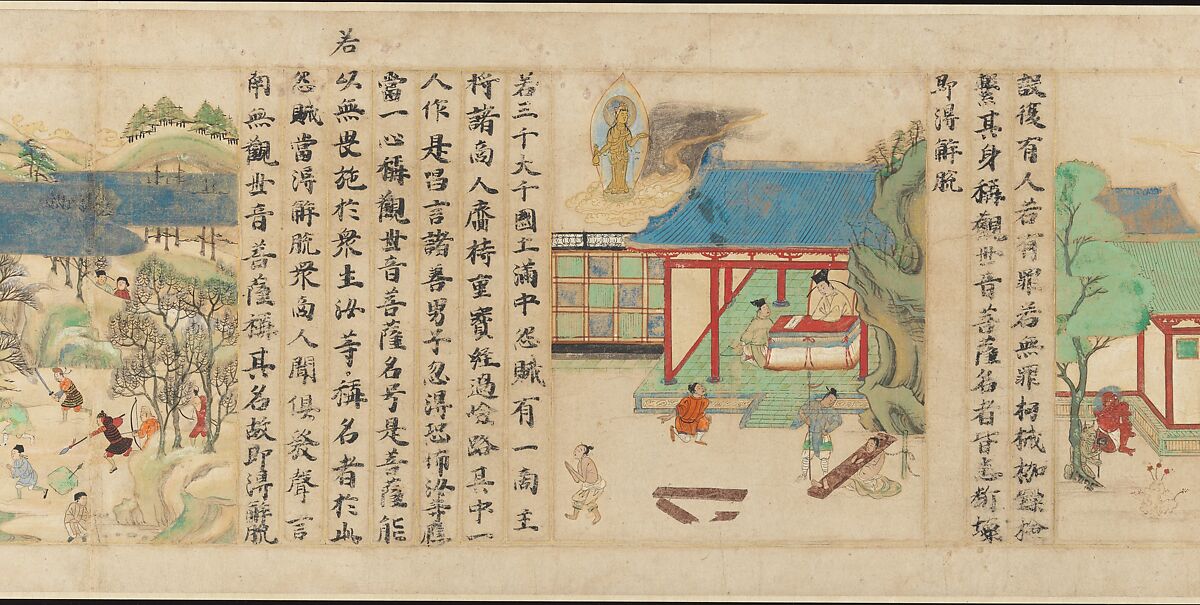 設復有人若有罪若無罪杻械枷鎖撿
繫其身稱觀世音菩薩名者皆悉斷壞
即得解脫
若三千大千國土滿中怨賊有一商主
將諸商人齎持重寶經過嶮路其中一
人作是唱言諸善男子忽得恐怖汝等應
當一心稱觀世音菩薩名号是菩薩能
若
以無畏施於衆生汝等稱名者於此
怨賊當得解脫衆商人聞俱發聲言
南無觀世音菩薩稱其名故即得解脫